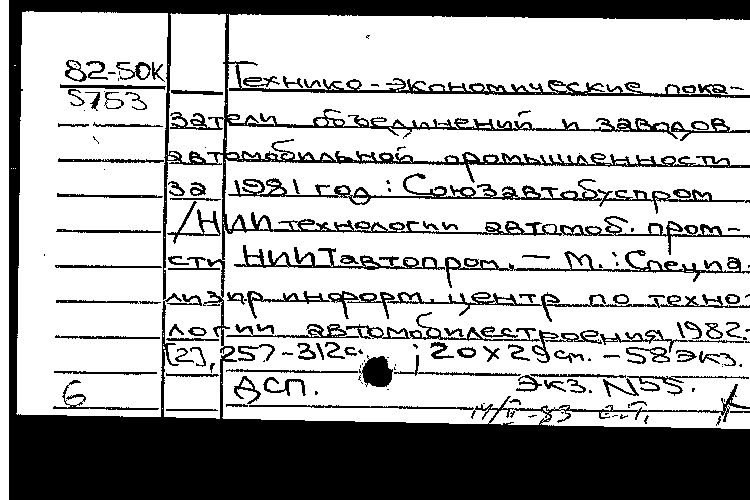 82-50К Технико-экономические пока-
5753
затели объединений и заводов
автомобильной промышленности
за 1981 год : Союзавтобуспром
/НИИ технологии автомоб. пром-
сти НИИТавтопром. — М. : Специа-
лизир информ. центр по техно-
логии автомобилестроения, 1982.
[2], 257-312с. ; 20×29см. – 58 экз.
6 ДСП. экз. N55.